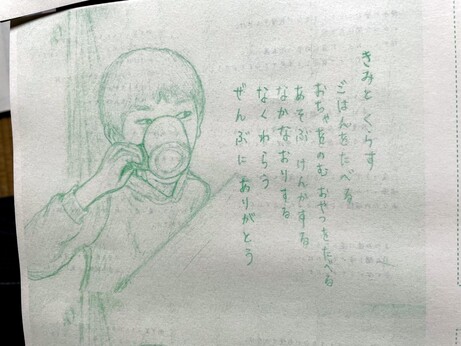 きみとくらす
ごはんをたべる
おちゃをのむ おやつをたべる
あそぶ けんかする
なかなおりする
なくわらう
ぜんぶに ありがとう